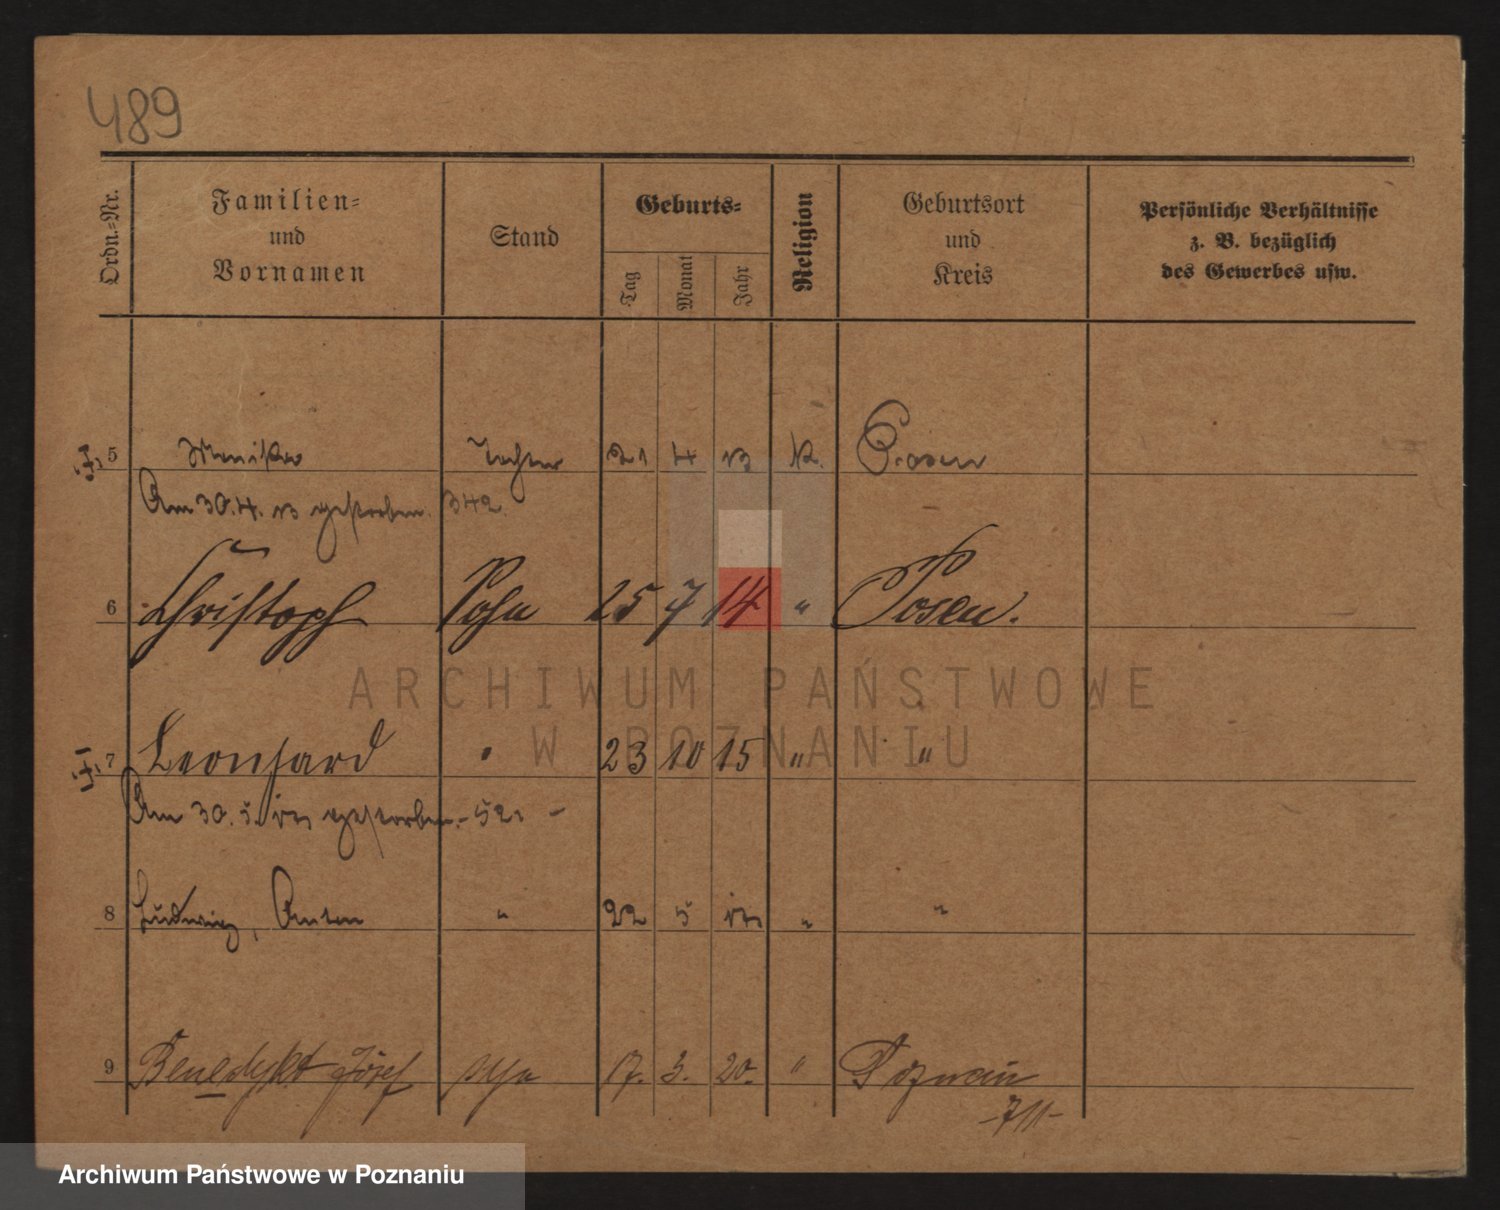 489
Ordn.-Nr.
Familien-
und
Vornamen
Stand
Geburts-
Tag
Monat
Jahr
Religion
Geburtsort
und
Kreis
Persönliche Verhältnisse
z. B. bezüglich
des Gewerbes usw.
5 Monika Tochter 21 4 13 K. Posen
Am 30.4.13 gestorben. 342.
6 Christoph Sohn 25 7 14 " Posen.
ARCHIWUM PAŃSTWOWE
W POZNANIU
7 Leonhard " 23 10 15 " "
Am 30. 5. gestorben. - 521 -
8 Ludwig, Anton " 22 5 " "
9 Benedykt Józef syn 17. 3. 20. " Poznań
-711-
Archiwum Państwowe w Poznaniu